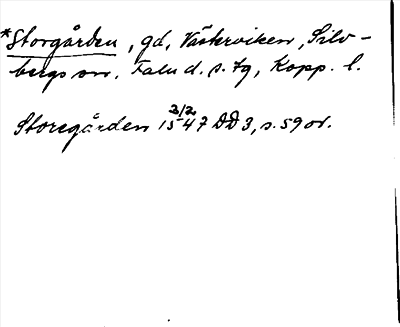 *Storgården, gd, Västerviken, Silv-
bergs sn, Falu d. s. tg, Kopp. l.
Storegården 3/2 1547 DD 3, s. 59 or.